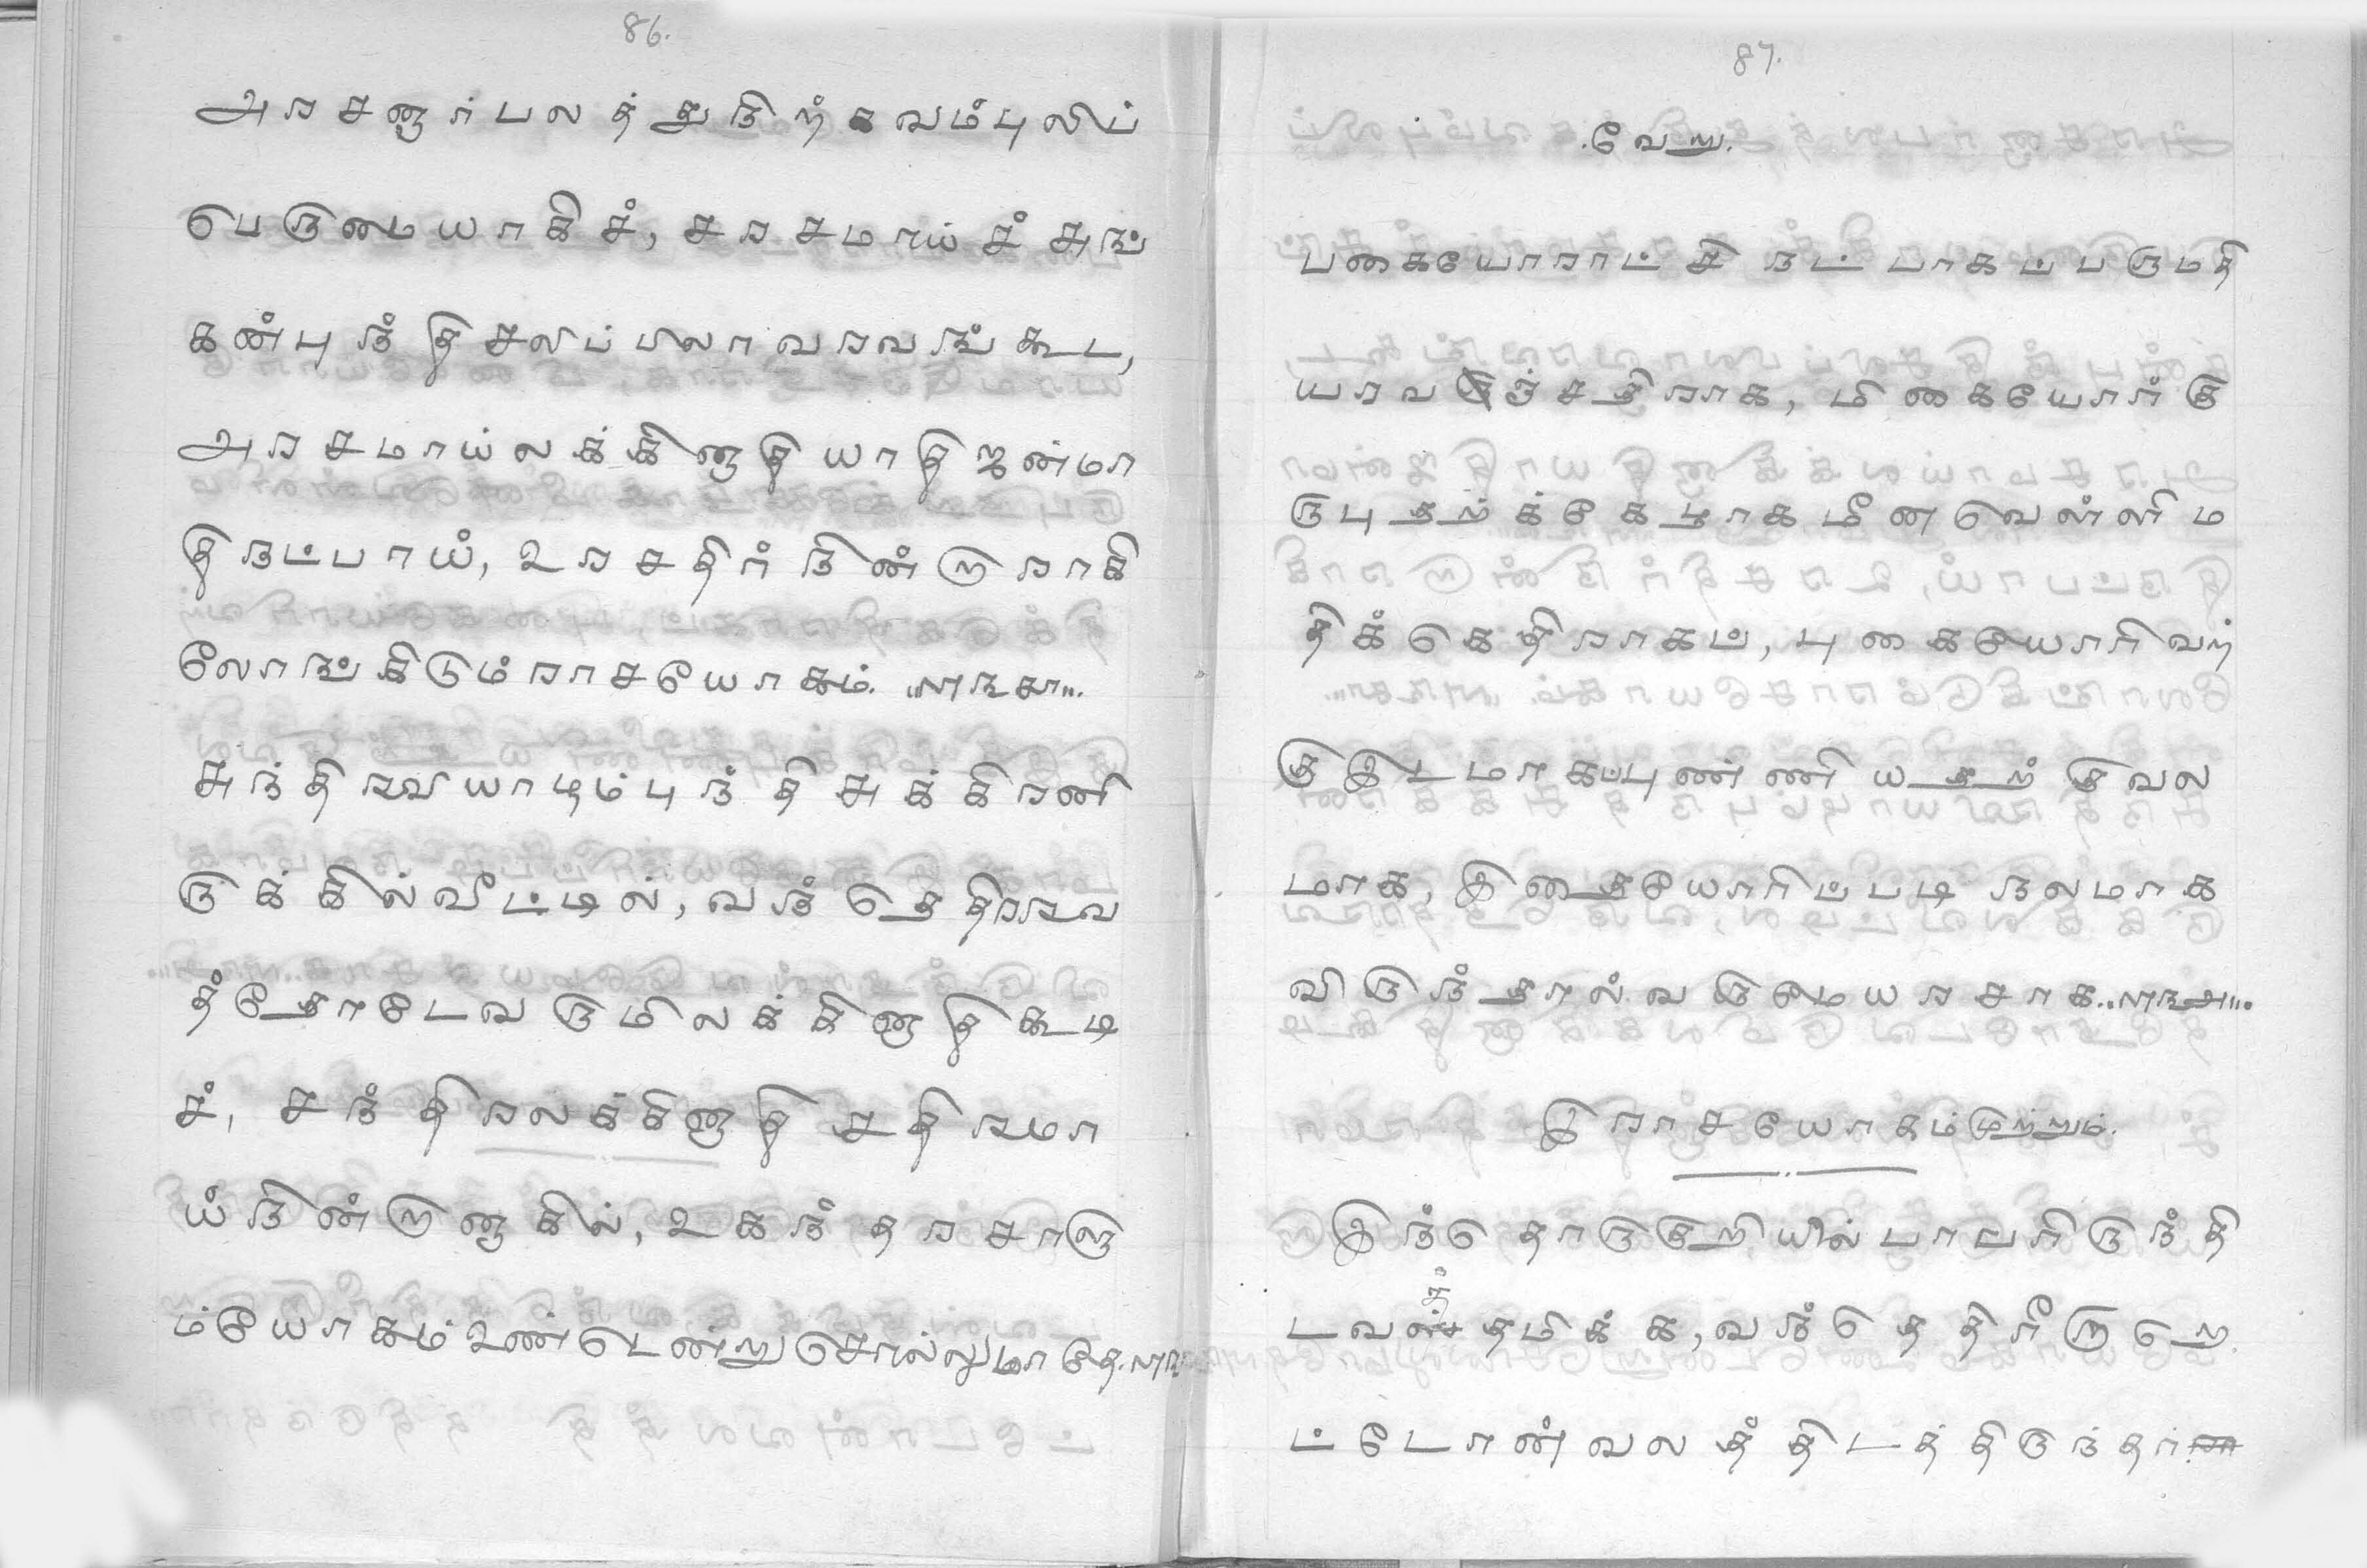 86.
அரசனார்பலத்துநிற்கவம்புலிப்
பெருமையாகிச், சரசமாய்ச் சுங்
கன்புந்தி சலிப்பிலாவரவங்கூட,
அரசமாய்லக்கினாதியாதிஜன்மா
திநட்பாய், உரசதிர் நின்றாராகி
லோங்கிடும்ராசயோகம். ௱௩௭
சுந்திரவியாழம்புந்தி சுக்கிரனி
ருக்கில்வீட்டில், வந்தெதிரவ
த்தோடேவருமிலக்கினாதிகூடி
ச், சந்திரலக்கினாதி சதிரமா
ய்நின்றானாகில், உகந்தரசாளு
ம்யோகம்உண்டென்றுசொல்லுமாதே.
87.
.வேறு.
பகையோராட்சி நட்பாகப்பருமதி
யரவுச்சதிராக, மிகையோர்கு
ருபுதற்க்கேகமாகமீனவெள்ளிம
திக்கெதிராகப், புகையோரிவற்
குதிடமாகப்புண்ணியதற்குவல
மாக, திசையோரிப்படி நலமாக
விருந்தால்வருமேயரசாக..௱௩௮
இராசயோகம்முற்றும்.
இந்தொருகுறியில்பாவரிருந்தி
டவன்சுதமிக்க, வந்தெதிரீறுறெ
ட்டோன்வலத்திடத்திருந்தர்